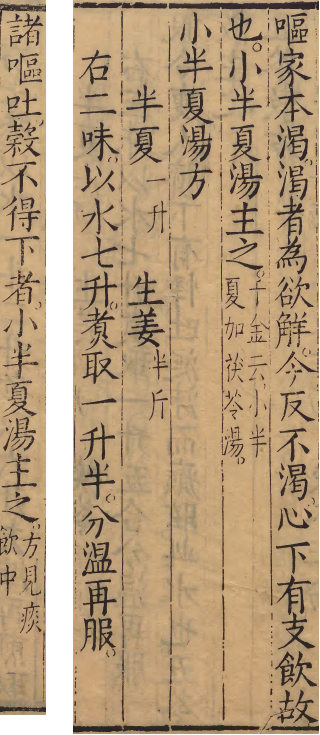 嘔家本渴。渴者為欲解。今反不渴。心下有支飲故
也。小半夏湯主之。千金云。小半夏加茯苓湯。
小半夏湯方
半夏一升 生姜半斤
右二味。以水七升。煮取一升半。分温再服。
諸嘔吐。穀不得下者。小半夏湯主之。方見痰飲中